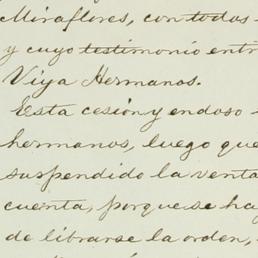 Miraflores, con todos
y cuyo testimonio entr
Viya Hermanos.
Esta cesión y endoso
hermanos, luego que
suspendido la venta
cuenta, porque se ha
de librarse la orden,